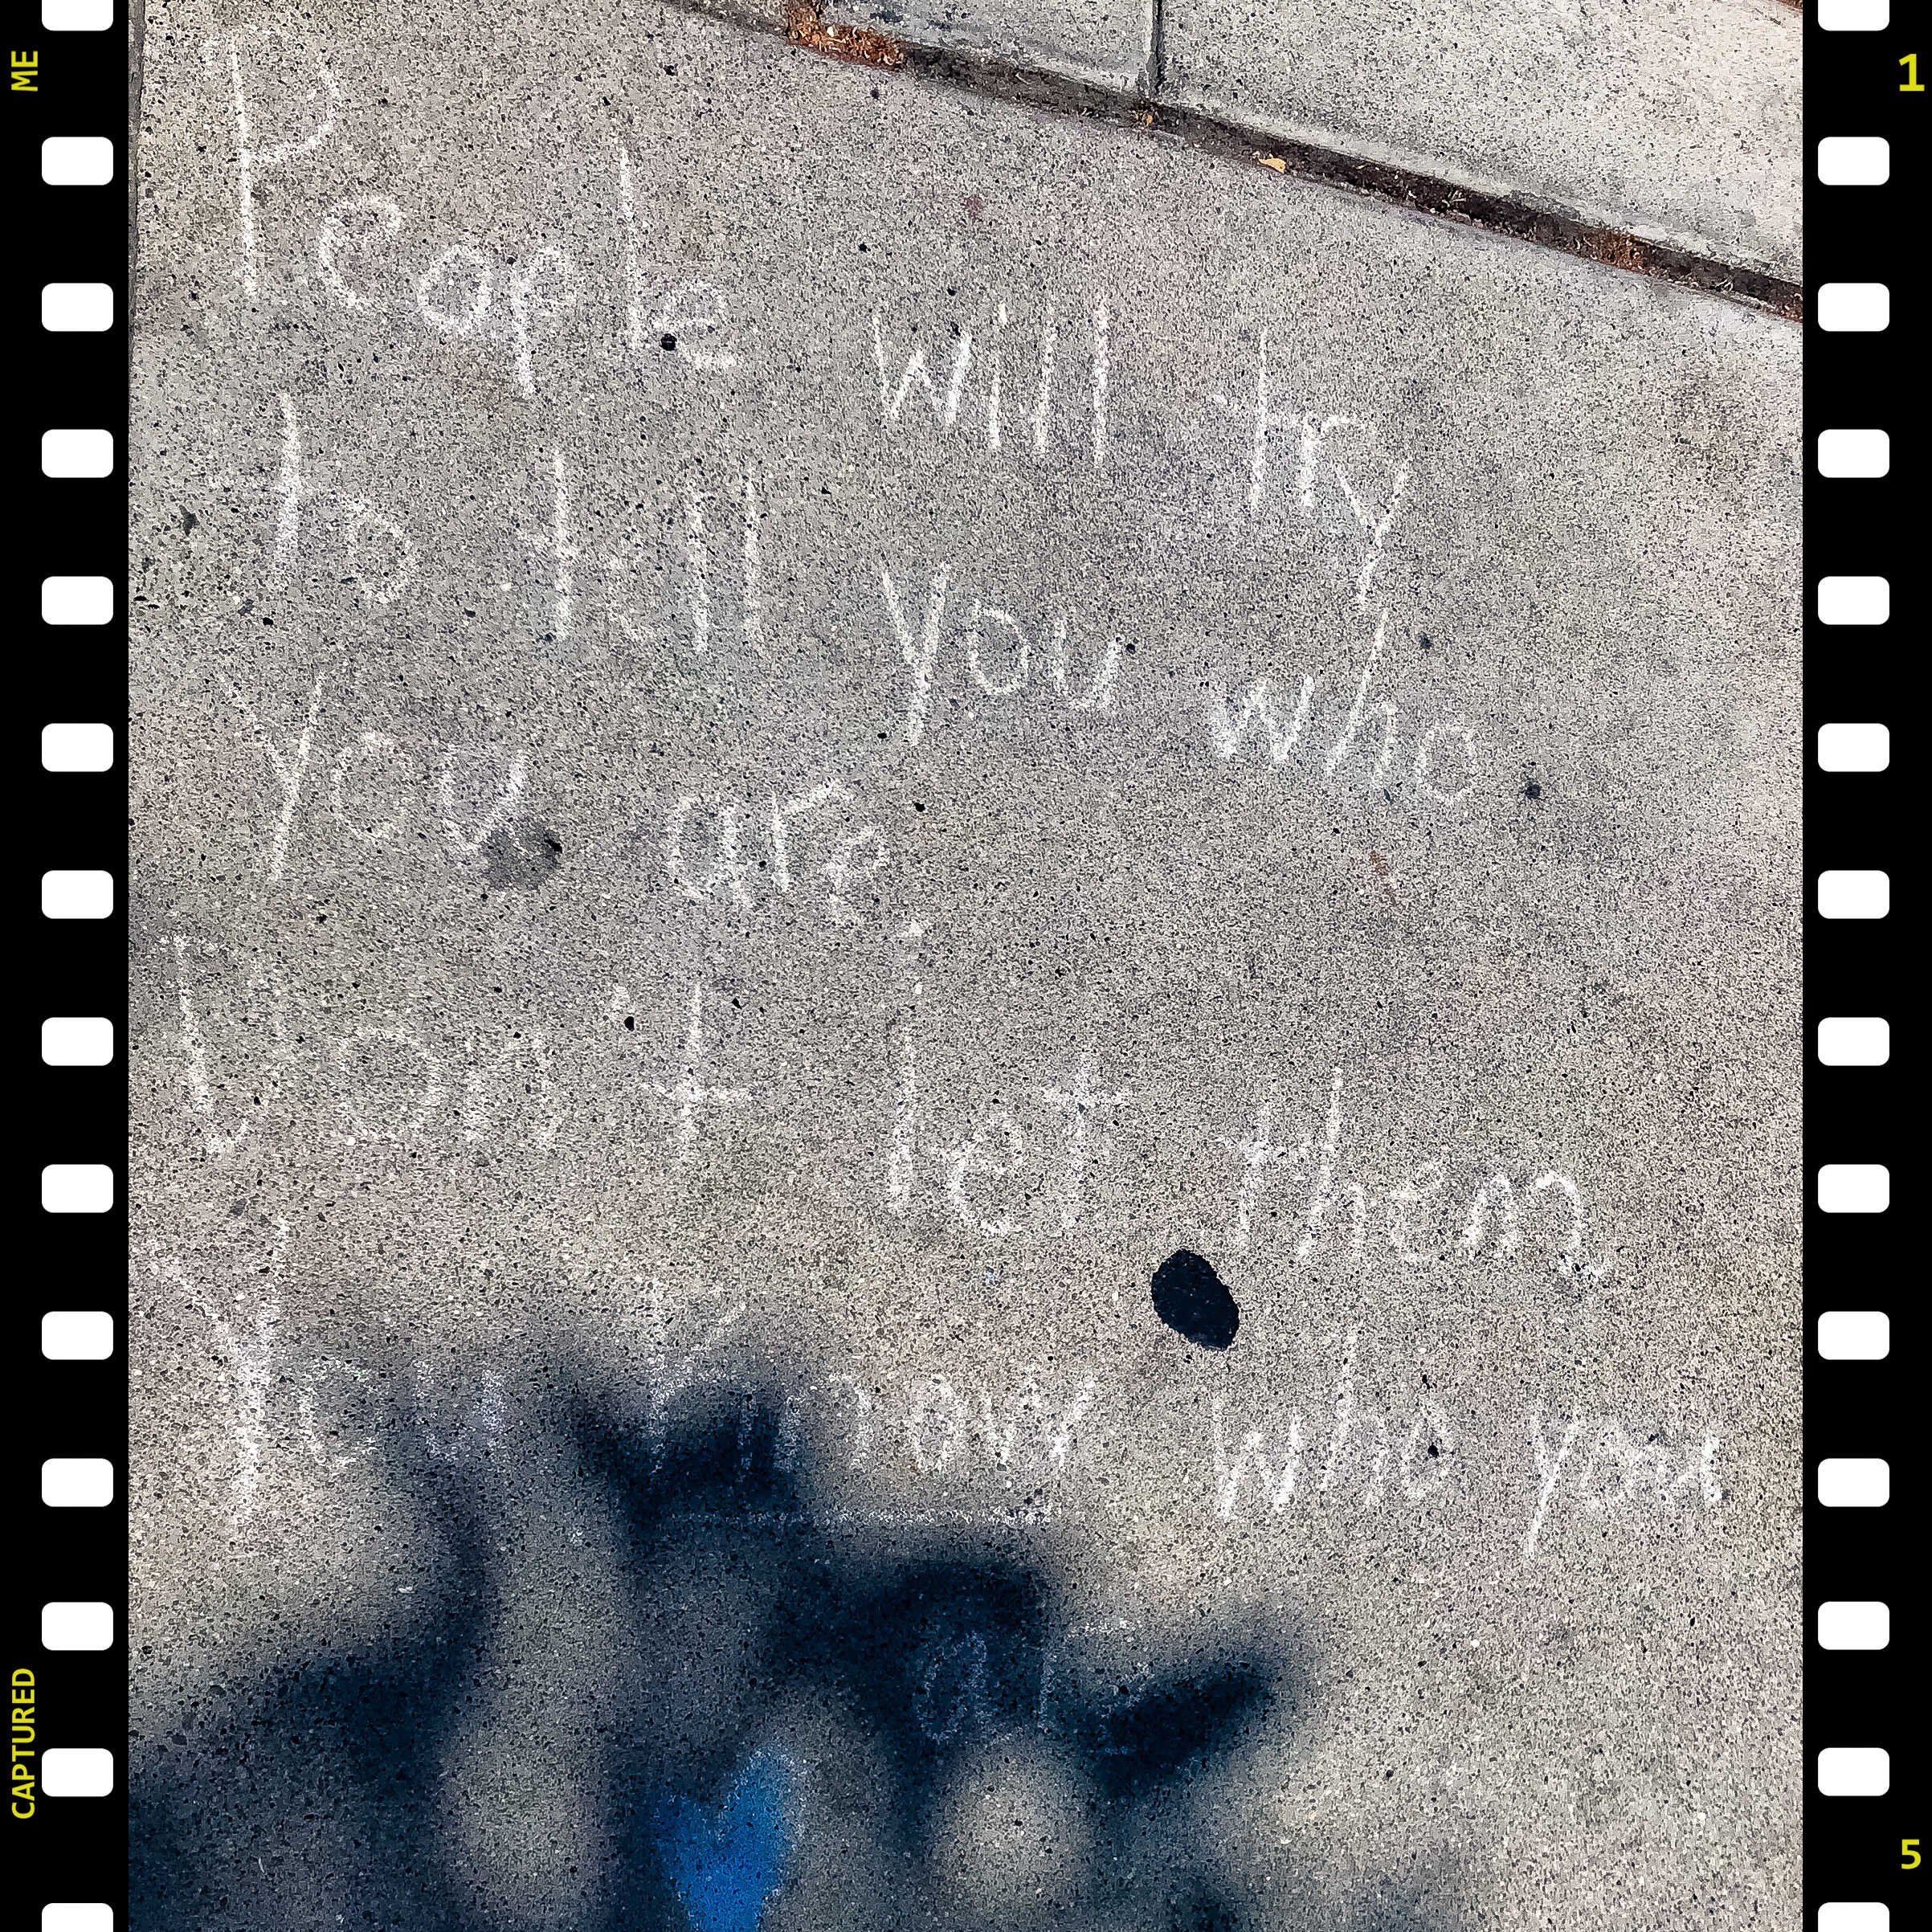 ME
1
People will try
to tell you who
you are,
Don't let them
You know who you
are
CAPTURED
5